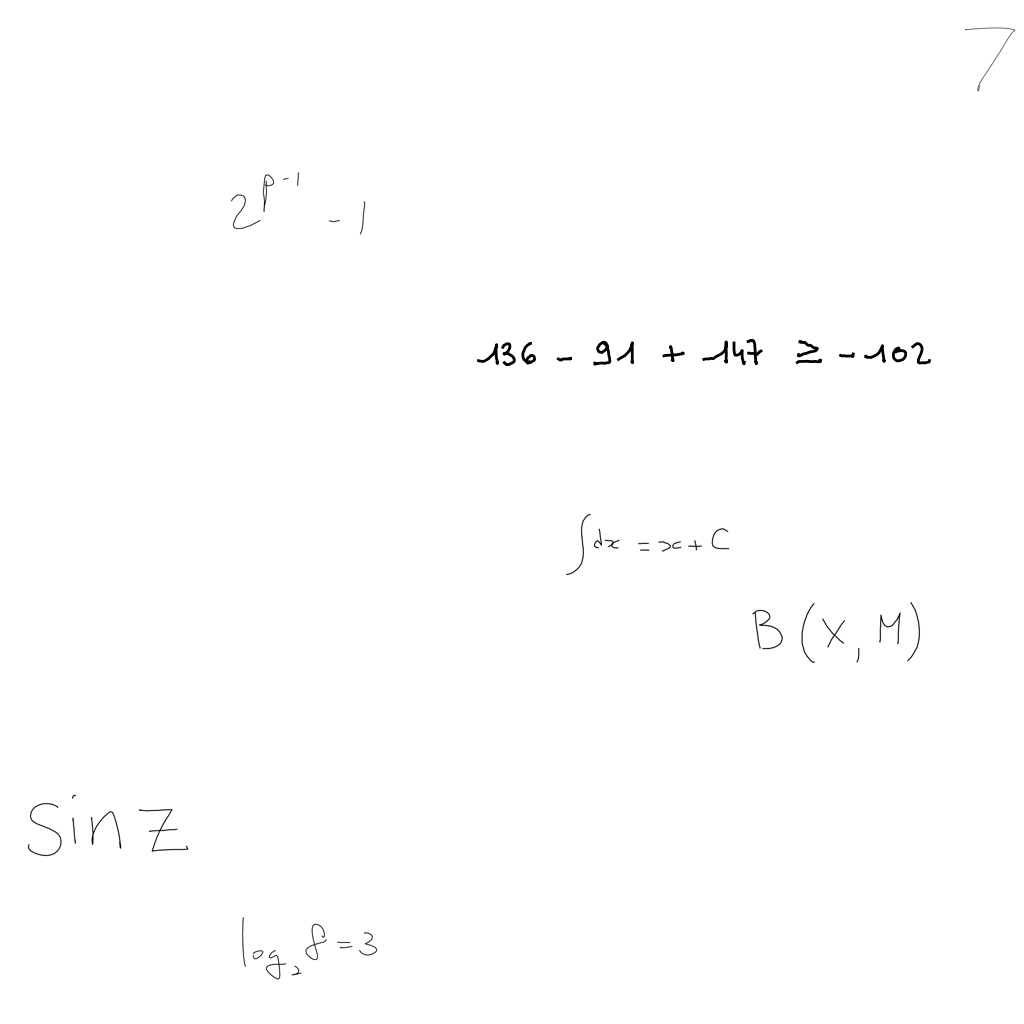 7
2^{p-1} - 1
136 - 91 + 147 ≥ -102
∫dx = x + C
B(X, M)
sin z
log₂ 8 = 3